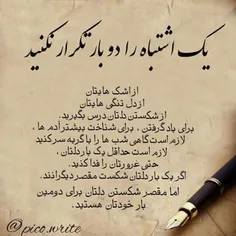 یک اشتباه را دو بار تکرار نکنید
از اشک هایتان
از دل تنگی هایتان
از شکستن دلتان درس بگیرید.
برای یاد گرفتن ، برای شناخت بیشتر آدم ها ،
لازم است گاهی شب ها را با گریه سر کنید
لازم است حداقل یک بار دلتان ،
حتی غرورتان را فدا کنید.
اگر یک بار دلتان شکست مقصر دیگرانند.
اما مقصر شکستن دلتان برای دومین
بار خودتان هستید.
@pico.write